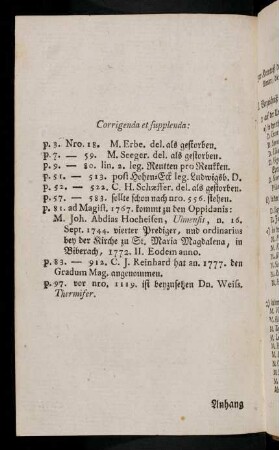 Corrigenda et supplenda:
p. 3. Nro. 18. M. Erbe. del. als gestorben.
p. 7. — 59. M. Seeger. del. als gestorben.
p. 9. — 80. lin. 2. leg. Reutten pro Reukken.
p. 51. — 513. post Hohen-Eck leg. Ludwigsb. D.
p. 52. — 522. C. H. Schæffer. del. als gestorben.
p. 57. — 583. sollte schon nach nro. 556. stehen.
p. 81. ad Magist. 1767. kommt zu den Oppidanis:
M. Joh. Abdias Hocheisen, Ulmensis, n. 16.
Sept. 1744. vierter Prediger, und ordinarius
bey der Kirche zu St. Maria Magdalena, in
Biberach, 1772. II. Eodem anno.
p. 83. — 912. C. J. Reinhard hat an. 1777. den
Gradum Mag. angenommen.
p. 97. vor nro. 1119. ist beyzusetzen Dn. Weiss.
Thermifer.
Anhang